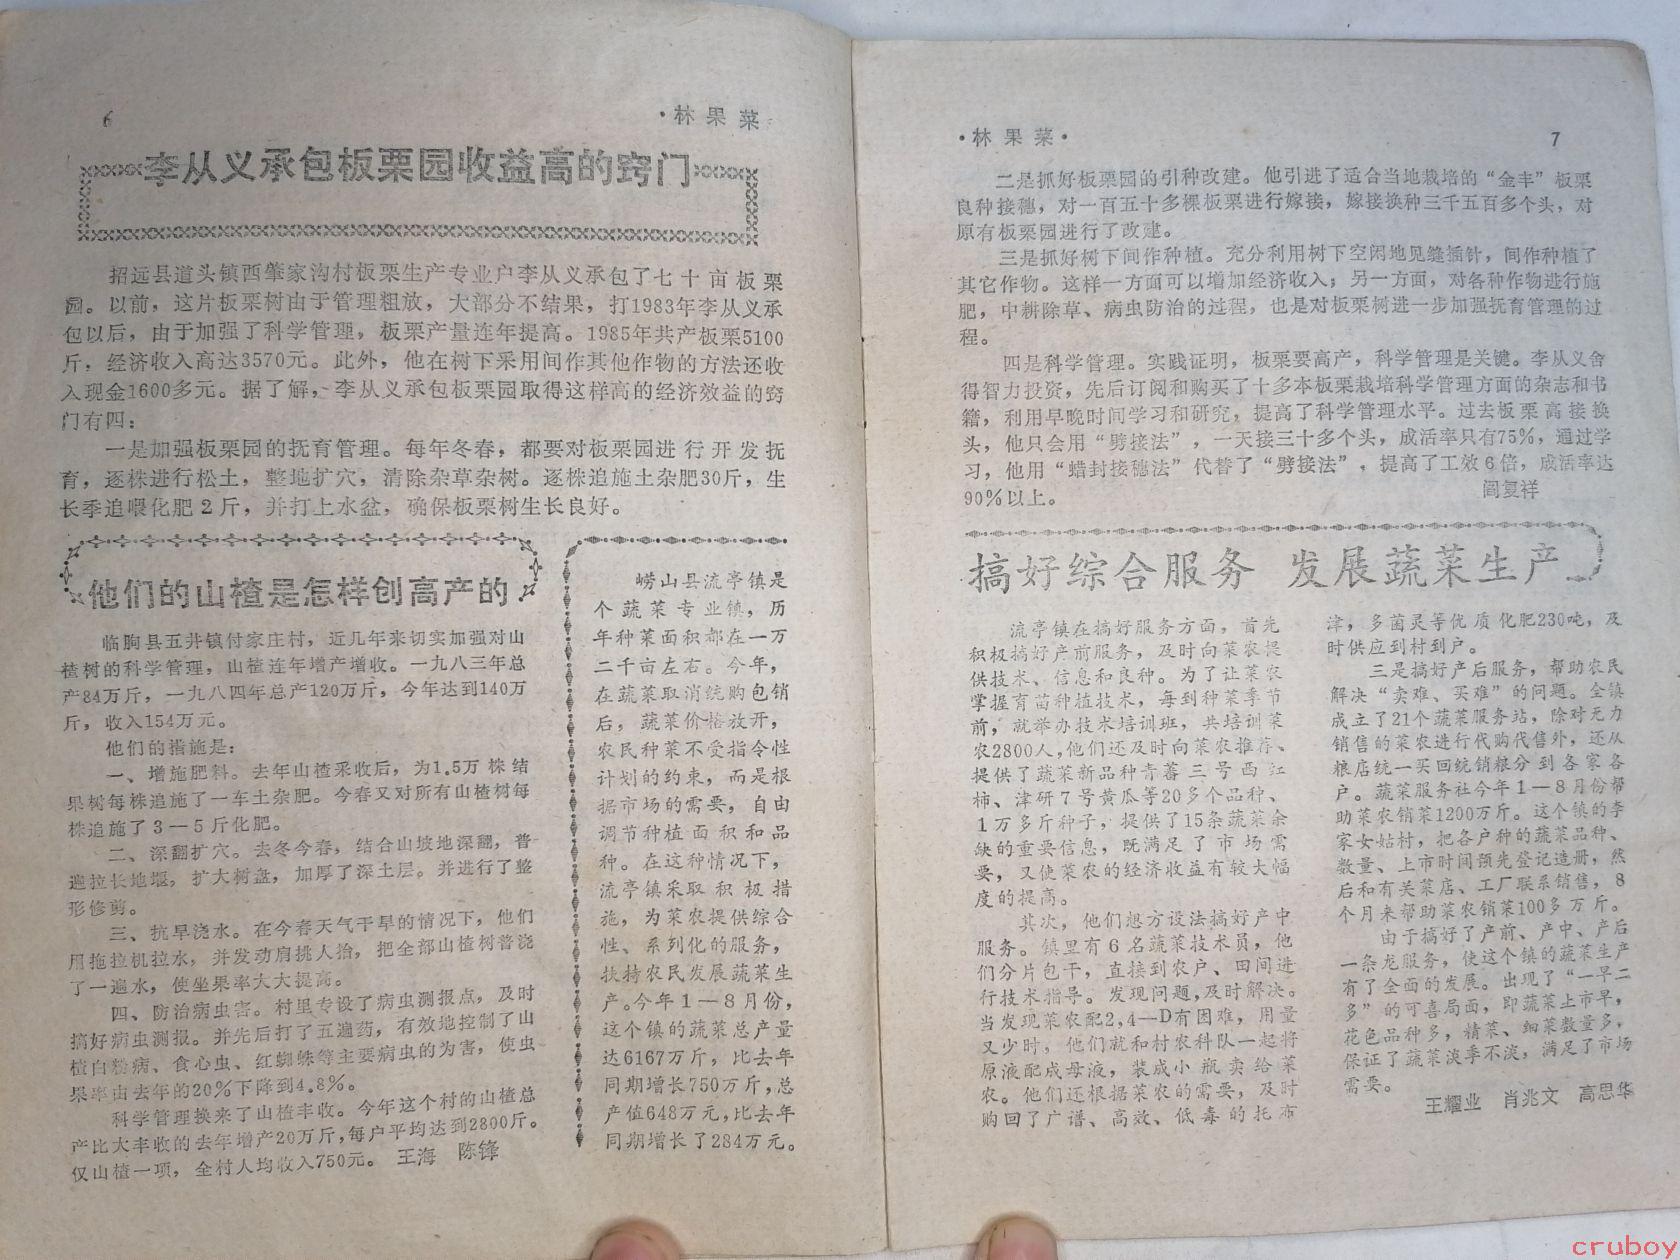 6
·林果菜
李从义承包板栗园收益高的窍门
招远县道头镇西肇家沟村板栗生产专业户李从义承包了七十亩板栗
园。以前，这片板栗树由于管理粗放，大部分不结果，打1983年李从义承
包以后，由于加强了科学管理，板栗产量连年提高。1985年共产板栗5100
斤，经济收入高达3570元。此外，他在树下采用间作其他作物的方法还收
入现金1600多元。据了解，李从义承包板栗园取得这样高的经济效益的窍
门有四：
一是加强板栗园的抚育管理。每年冬春，都要对板栗园进行开发抚
育，逐株进行松土，整地扩穴，清除杂草杂树。逐株追施土杂肥30斤，生
长季追喂化肥2斤，并打上水盆，确保板栗树生长良好。
他们的山楂是怎样创高产的
临朐县五井镇付家庄村，近几年来切实加强对山
楂树的科学管理，山楂连年增产增收。一九八三年总
产84万斤，一九八四年总产120万斤，今年达到140万
斤，收入154万元。
他们的措施是：
一、增施肥料。去年山楂采收后，为1.5万株结
果树每株追施了一车土杂肥。今春又对所有山楂树每
株追施了3—5斤化肥。
二、深翻扩穴。去冬今春，结合山坡地深翻，普
遍拉长地堰，扩大树盘，加厚了深土层。并进行了整
形修剪。
三、抗旱浇水。在今春天气干旱的情况下，他们
用拖拉机拉水，并发动肩挑人抬，把全部山楂树普浇
了一遍水，使坐果率大大提高。
四、防治病虫害。村里专设了病虫测报点，及时
搞好病虫测报。并先后打了五遍药，有效地控制了山
楂白粉病、食心虫、红蜘蛛等主要病虫的为害，使虫
果率由去年的20%下降到4.8%。
科学管理换来了山楂丰收。今年这个村的山楂总
产比大丰收的去年增产20万斤，每户平均达到2800斤。
仅山楂一项，全村人均收入750元。 王海 陈锋
崂山县流亭镇是
个蔬菜专业镇，历
年种菜面积都在一万
二千亩左右。今年，
在蔬菜取消统购包销
后，蔬菜价格放开，
农民种菜不受指令性
计划的约束，而是根
据市场的需要，自由
调节种植面积和品
种。在这种情况下，
流亭镇采取积极措
施，为菜农提供综合
性、系列化的服务，
扶持农民发展蔬菜生
产。今年1—8月份，
这个镇的蔬菜总产量
达6167万斤，比去年
同期增长750万斤，总
产值648万元，比去年
同期增长了284万元。
·林果菜·
7
二是抓好板栗园的引种改建。他引进了适合当地栽培的“金丰”板栗
良种接穗，对一百五十多棵板栗进行嫁接，嫁接换种三千五百多个头，对
原有板栗园进行了改建。
三是抓好树下间作种植。充分利用树下空闲地见缝插针，间作种植了
其它作物。这样一方面可以增加经济收入；另一方面，对各种作物进行施
肥，中耕除草、病虫防治的过程，也是对板栗树进一步加强抚育管理的过
程。
四是科学管理。实践证明，板栗要高产，科学管理是关键。李从义舍
得智力投资，先后订阅和购买了十多本板栗栽培科学管理方面的杂志和书
籍，利用早晚时间学习和研究，提高了科学管理水平。过去板栗高接换
头，他只会用“劈接法”，一天接三十多个头，成活率只有75%，通过学
习，他用“蜡封接穗法”代替了“劈接法”，提高了工效6倍，成活率达
90%以上。
阎复祥
搞好综合服务 发展蔬菜生产
流亭镇在搞好服务方面，首先
积极搞好产前服务，及时向菜农提
供技术、信息和良种。为了让菜农
掌握育苗种植技术，每到种菜季节
前，就举办技术培训班，共培训菜
农2800人，他们还及时向菜农推荐、
提供了蔬菜新品种青蕃三号西红
柿、津研7号黄瓜等20多个品种、
1万多斤种子，提供了15条蔬菜余
缺的重要信息，既满足了市场需
要，又使菜农的经济收益有较大幅
度的提高。
其次，他们想方设法搞好产中
服务。镇里有6名蔬菜技术员，他
们分片包干，直接到农户、田间进
行技术指导。发现问题，及时解决。
当发现菜农配2,4—D有困难，用量
又少时，他们就和村农科队一起将
原液配成母液，装成小瓶卖给菜
农。他们还根据菜农的需要，及时
购回了广谱、高效、低毒的托布
津，多菌灵等优质化肥230吨，及
时供应到村到户。
三是搞好产后服务，帮助农民
解决“卖难、买难”的问题。全镇
成立了21个蔬菜服务站，除对无力
销售的菜农进行代购代售外，还从
粮店统一买回统销粮分到各家各
户。蔬菜服务社今年1—8月份帮
助菜农销菜1200万斤。这个镇的李
家女姑村，把各户种的蔬菜品种、
数量、上市时间预先登记造册，然
后和有关菜店、工厂联系销售，8
个月来帮助菜农销菜100多万斤。
由于搞好了产前、产中、产后
一条龙服务，使这个镇的蔬菜生产
有了全面的发展。出现了“一早二
多”的可喜局面，即蔬菜上市早，
花色品种多，精菜、细菜数量多，
保证了蔬菜淡季不淡，满足了市场
需要。
王耀业 肖兆文 高思华
cruboy